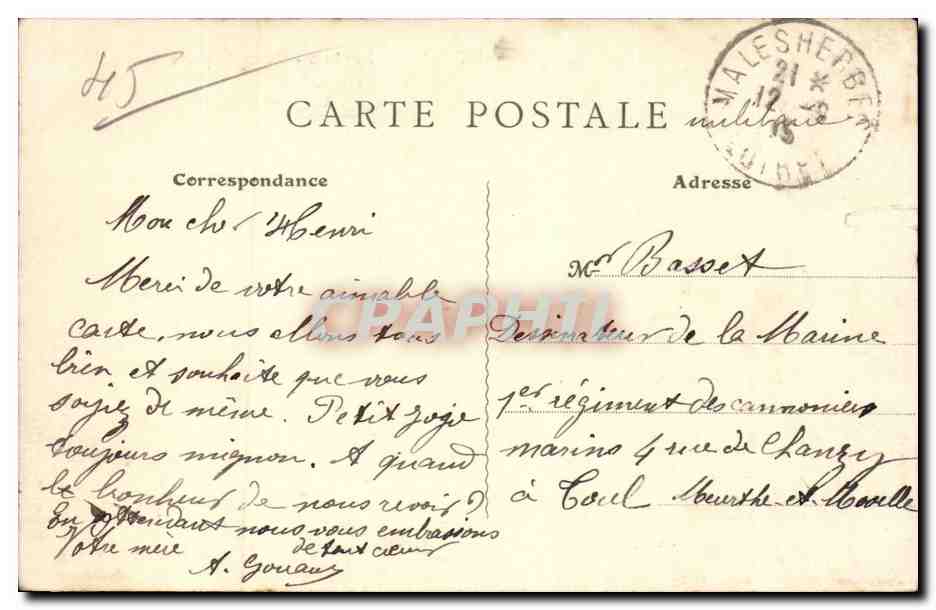 45
CARTE POSTALE militaire
MALESHERBES
21
12
15
LOIRET
Correspondance
Adresse
Mon cher Henri
Merci de votre aimable
carte, nous allons tous
bien et souhaite que vous
soyiez de même. Petit
toujours mignon. A quand
le bonheur de nous revoir?
En attendant nous vous embrassons
de tout cœur
Votre mère
A.
Mr Basset
Dessinateur de la Marine
1er régiment des cannoniers
marins 4 rue de Chanzy
à Toul Meurthe et Moselle
CPAPHIL